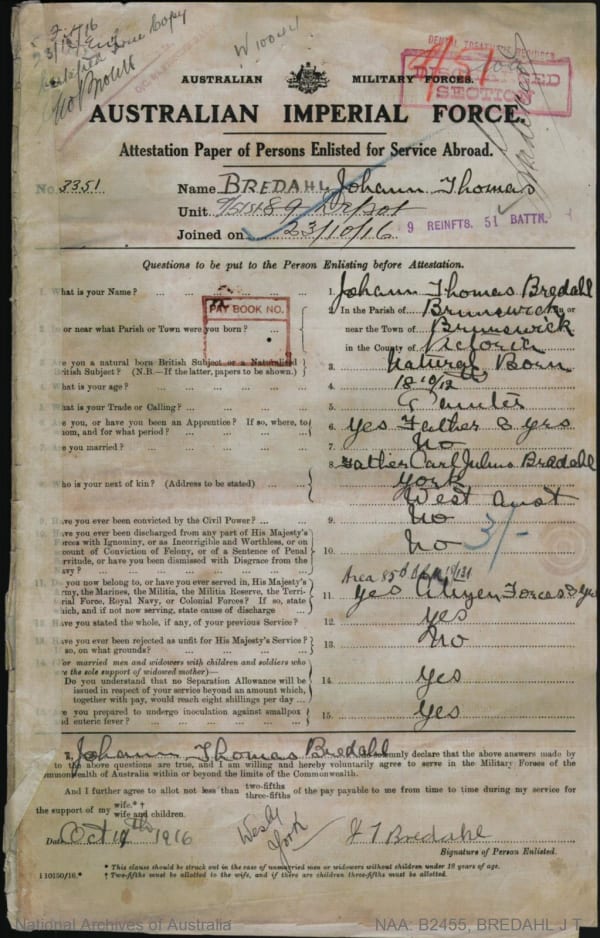 23/10/16
Certified True Copy
W10044
DENTAL TREATMENT REQUIRED
AUSTRALIAN MILITARY FORCES.
AUSTRALIAN IMPERIAL FORCE.
Attestation Paper of Persons Enlisted for Service Abroad.
No. 3351
Name BREDAHL Johann Thomas
Unit 89 Depot
9 REINFTS. 51 BATTN.
Joined on 23/10/16
Questions to be put to the Person Enlisting before Attestation.
What is your Name? ... 1. Johann Thomas Bredahl
PAY BOOK NO.
In or near what Parish or Town were you born? ... 2. In the Parish of Brunswick in or
near the Town of Brunswick
in the County of Victoria
Are you a natural born British Subject or a Naturalised
British Subject? (N.B.—If the latter, papers to be shown.) 3. Natural Born
What is your age? ... 4. 18 10/12
What is your Trade or Calling? ... 5. Painter
Are you, or have you been an Apprentice? If so, where, to
whom, and for what period? ... 6. Yes Father 3 yrs
Are you married? ... 7. No
Who is your next of kin? (Address to be stated) ... 8. Father Carl Julius Bredahl
York
West Aust
Have you ever been convicted by the Civil Power? ... 9. No
3/-
10. Have you ever been discharged from any part of His Majesty's
Forces with Ignominy, or as Incorrigible and Worthless, or on
account of Conviction of Felony, or of a Sentence of Penal
Servitude, or have you been dismissed with Disgrace from the
Navy? ... 10. No
Area 85
11. Do you now belong to, or have you ever served in, His Majesty's
Army, the Marines, the Militia, the Militia Reserve, the Terri-
torial Force, Royal Navy, or Colonial Forces? If so, state
which, and if not now serving, state cause of discharge 11. Yes Citizen Forces
Have you stated the whole, if any, of your previous Service? 12. Yes
Have you ever been rejected as unfit for His Majesty's Service?
If so, on what grounds? ... 13. No
(For married men and widowers with children and soldiers who
are the sole support of widowed mother)—
Do you understand that no Separation Allowance will be
issued in respect of your service beyond an amount which,
together with pay, would reach eight shillings per day ... 14. Yes
Are you prepared to undergo inoculation against smallpox
and enteric fever? ... 15. Yes
I, Johann Thomas Bredahl solemnly declare that the above answers made by
me to the above questions are true, and I am willing and hereby voluntarily agree to serve in the Military Forces of the
Commonwealth of Australia within or beyond the limits of the Commonwealth.
And I further agree to allot not less than two-fifths three-fifths of the pay payable to me from time to time during my service for
the support of my wife.* † wife and children.
Date Oct 1916
York
J T Bredahl
Signature of Person Enlisted.
* This clause should be struck out in the case of unmarried men or widowers without children under 18 years of age.
† Two-fifths must be allotted to the wife, and if there are children three-fifths must be allotted.
I 10150/16.*
National Archives of Australia
NAA: B2455, BREDAHL J T